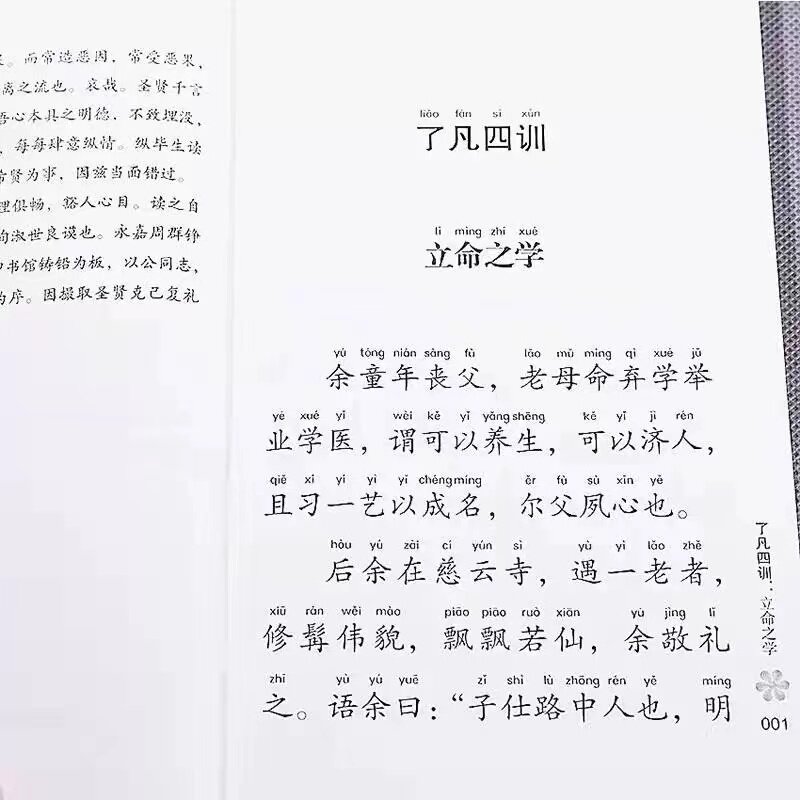 而常造恶因，常受恶果，
离之流也。哀哉。圣贤千言
吾心本具之明德，不致埋没，
，每每肆意纵情。纵毕生读
希贤为事，因兹当面错过。
理俱畅，豁人心目。读之自
淑世良谟也。永嘉周群铮
书馆铸铅为板，以公同志，
为序。因撮取圣贤克己复礼
liǎo fán sì xùn
了凡四训
lì mìng zhī xué
立命之学
yú tóng nián sàng fù lǎo mǔ mìng qì xué jǔ
余童年丧父，老母命弃学举
yè xué yī wèi kě yǐ yǎng shēng kě yǐ jì rén
业学医，谓可以养生，可以济人，
qiě xí yí yì yǐ chéng míng ěr fù sù xīn yě
且习一艺以成名，尔父夙心也。
hòu yú zài cí yún sì yù yì lǎo zhě
后余在慈云寺，遇一老者，
xiū rán wěi mào piāo piāo ruò xiān yú jìng lǐ
修髯伟貌，飘飘若仙，余敬礼
zhī yù yú yuē zǐ shì lù zhōng rén yě míng
之。语余曰：“子仕路中人也，明
了凡四训：立命之学
001